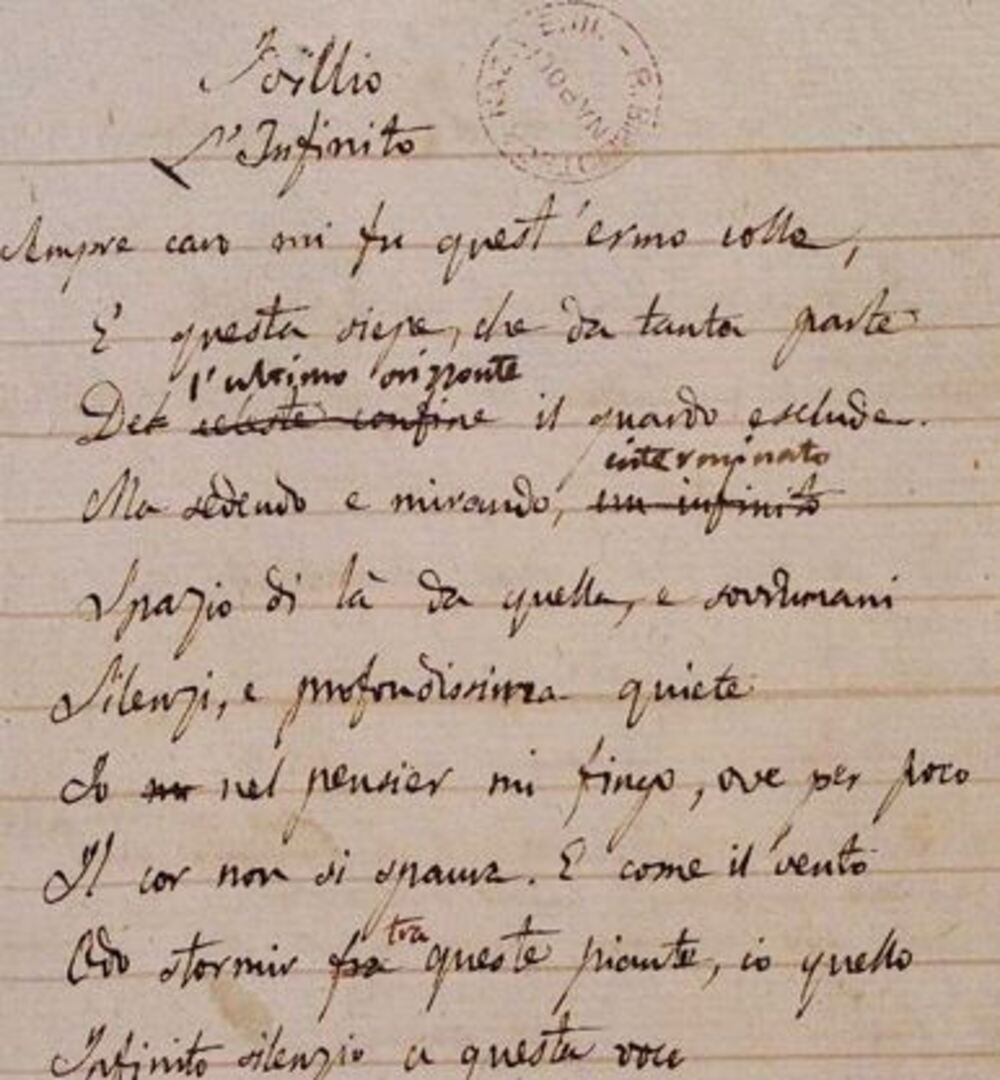 Idillio
L'Infinito
Sempre caro mi fu quest'ermo colle,
E questa siepe, che da tanta parte
l'ultimo orizzonte
Del celeste confine il guardo esclude.
interminato
Ma sedendo e mirando, un infinito
Spazio di là da quella, e sovrumani
Silenzi, e profondissima quiete
Io nel pensier mi fingo, ove per poco
Il cor non si spaura. E come il vento
tra
Odo stormir fra queste piante, io quello
Infinito silenzio a questa voce